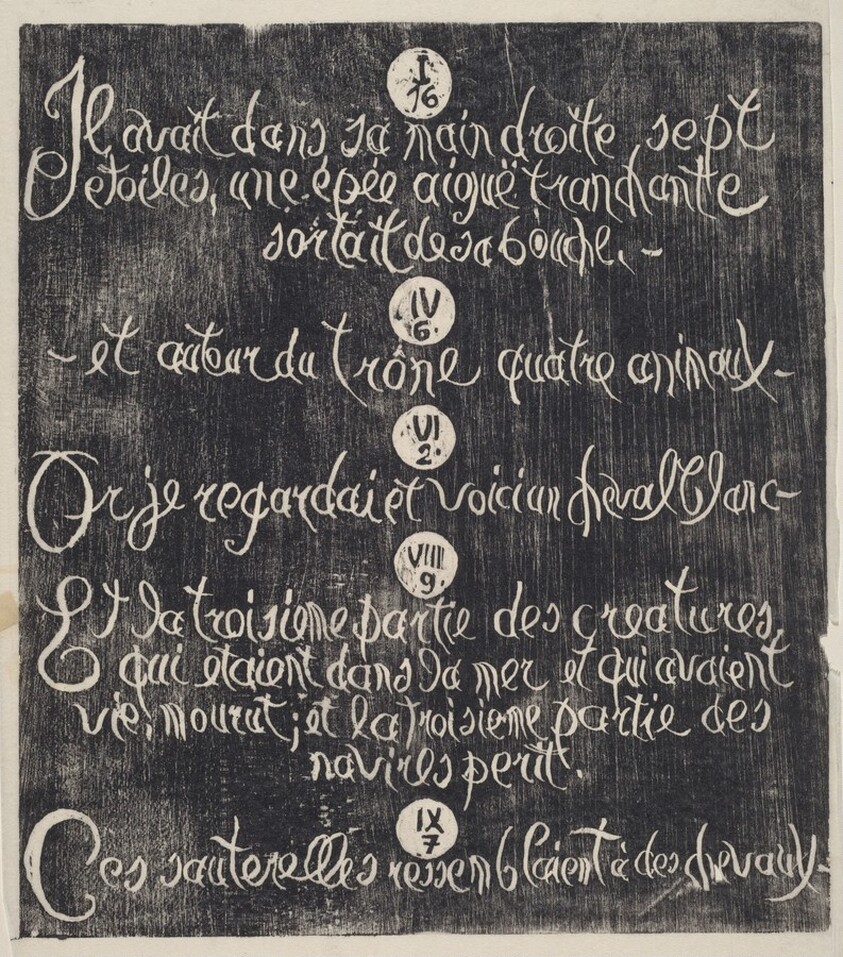 I
16
Il avait dans sa main droite, sept
étoiles, une épée aiguë tranchante
sortait de sa bouche. -
IV
6.
- et autour du trône quatre animaux -
VI
2.
Or je regardai et voici un cheval blanc -
VIII
9.
Et la troisieme partie des creatures,
qui etaient dans la mer et qui avaient
vie, mourut ; et la troisieme partie des
navires perit.
IX
7
Ces sauterelles ressemblaient à des chevaux -